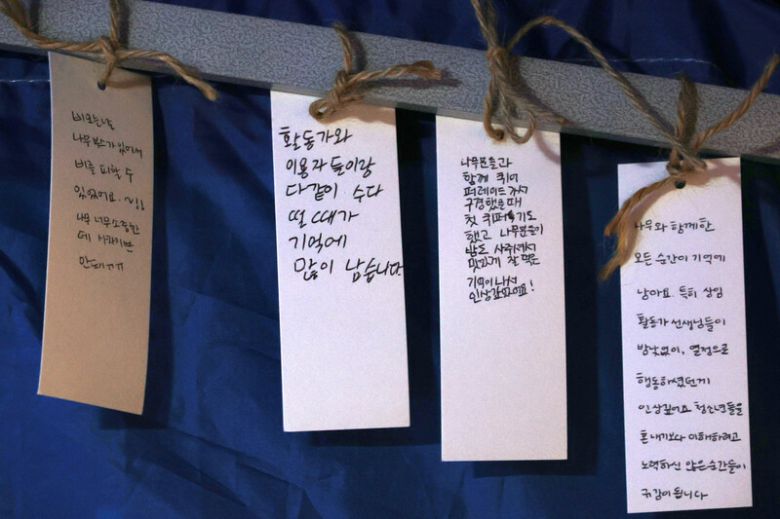 비오는날
나무 버스가 있어서
비를 피할 수
있었어요.
나무 너무 소중한
데 사라지면
안돼ㅠㅠ
활동가와
이용자들이랑
다같이 수다
떨 때가
기억에
많이 남습니다
나무분들과
함께 퀴어
퍼레이드 가서
구경했을 때
첫 퀴퍼기도
했고 나무분들이
밥도 사주셔서
맛있게 잘 먹은
기억이 나서
인상깊었어요!
나무와 함께한
모든 순간이 기억에
남아요. 특히 상임
활동가 선생님들이
밤낮없이, 열정으로
행동하셨던게
인상깊어요 청소년들을
혼내기보다 이해하려고
노력하신 많은 순간들이
귀감이 됩니다